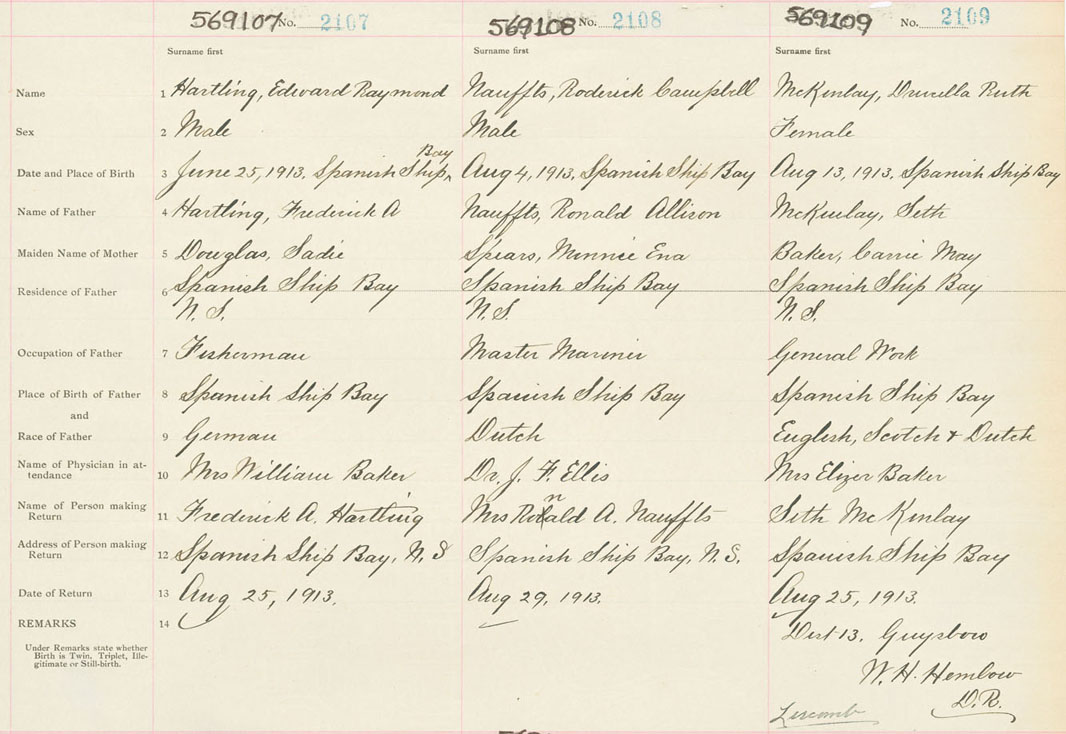 569107 No. 2107 569108 No. 2108 569109 No. 2109
Surname first Surname first Surname first
Name 1 Hartling, Edward Raymond Nauffts, Roderick Campbell McKinlay, Drucella Ruth
Sex 2 Male Male Female
Bay
Date and Place of Birth 3 June 25, 1913, Spanish Ship^ Aug 4, 1913, Spanish Ship Bay Aug 13, 1913, Spanish Ship Bay
Name of Father 4 Hartling, Frederick A Nauffts, Ronald Allison McKinlay, Seth
Maiden Name of Mother 5 Douglas, Sadie Spears, Minnie Ena Baker, Carrie May
Residence of Father 6 Spanish Ship Bay Spanish Ship Bay Spanish Ship Bay
N. S. N. S. N. S.
Occupation of Father 7 Fisherman Master Mariner General Work
Place of Birth of Father 8 Spanish Ship Bay Spanish Ship Bay Spanish Ship Bay
and
Race of Father 9 German Dutch English, Scotch & Dutch
Name of Physician in at-
tendance 10 Mrs William Baker Dr. J. F. Ellis Mrs Elizer Baker
Name of Person making
Return 11 Frederick A. Hartling Mrs Ronald A. Nauffts Seth McKinlay
Address of Person making
Return 12 Spanish Ship Bay, N. S Spanish Ship Bay, N. S. Spanish Ship Bay
Date of Return 13 Aug 25, 1913. Aug 29, 1913. Aug 25, 1913.
REMARKS 14 Dist 13. Guysboro
Under Remarks state whether
Birth is Twin, Triplet, Ille-
gitimate or Still-birth.
W. H. Hemlow
D. R.
Liscomb